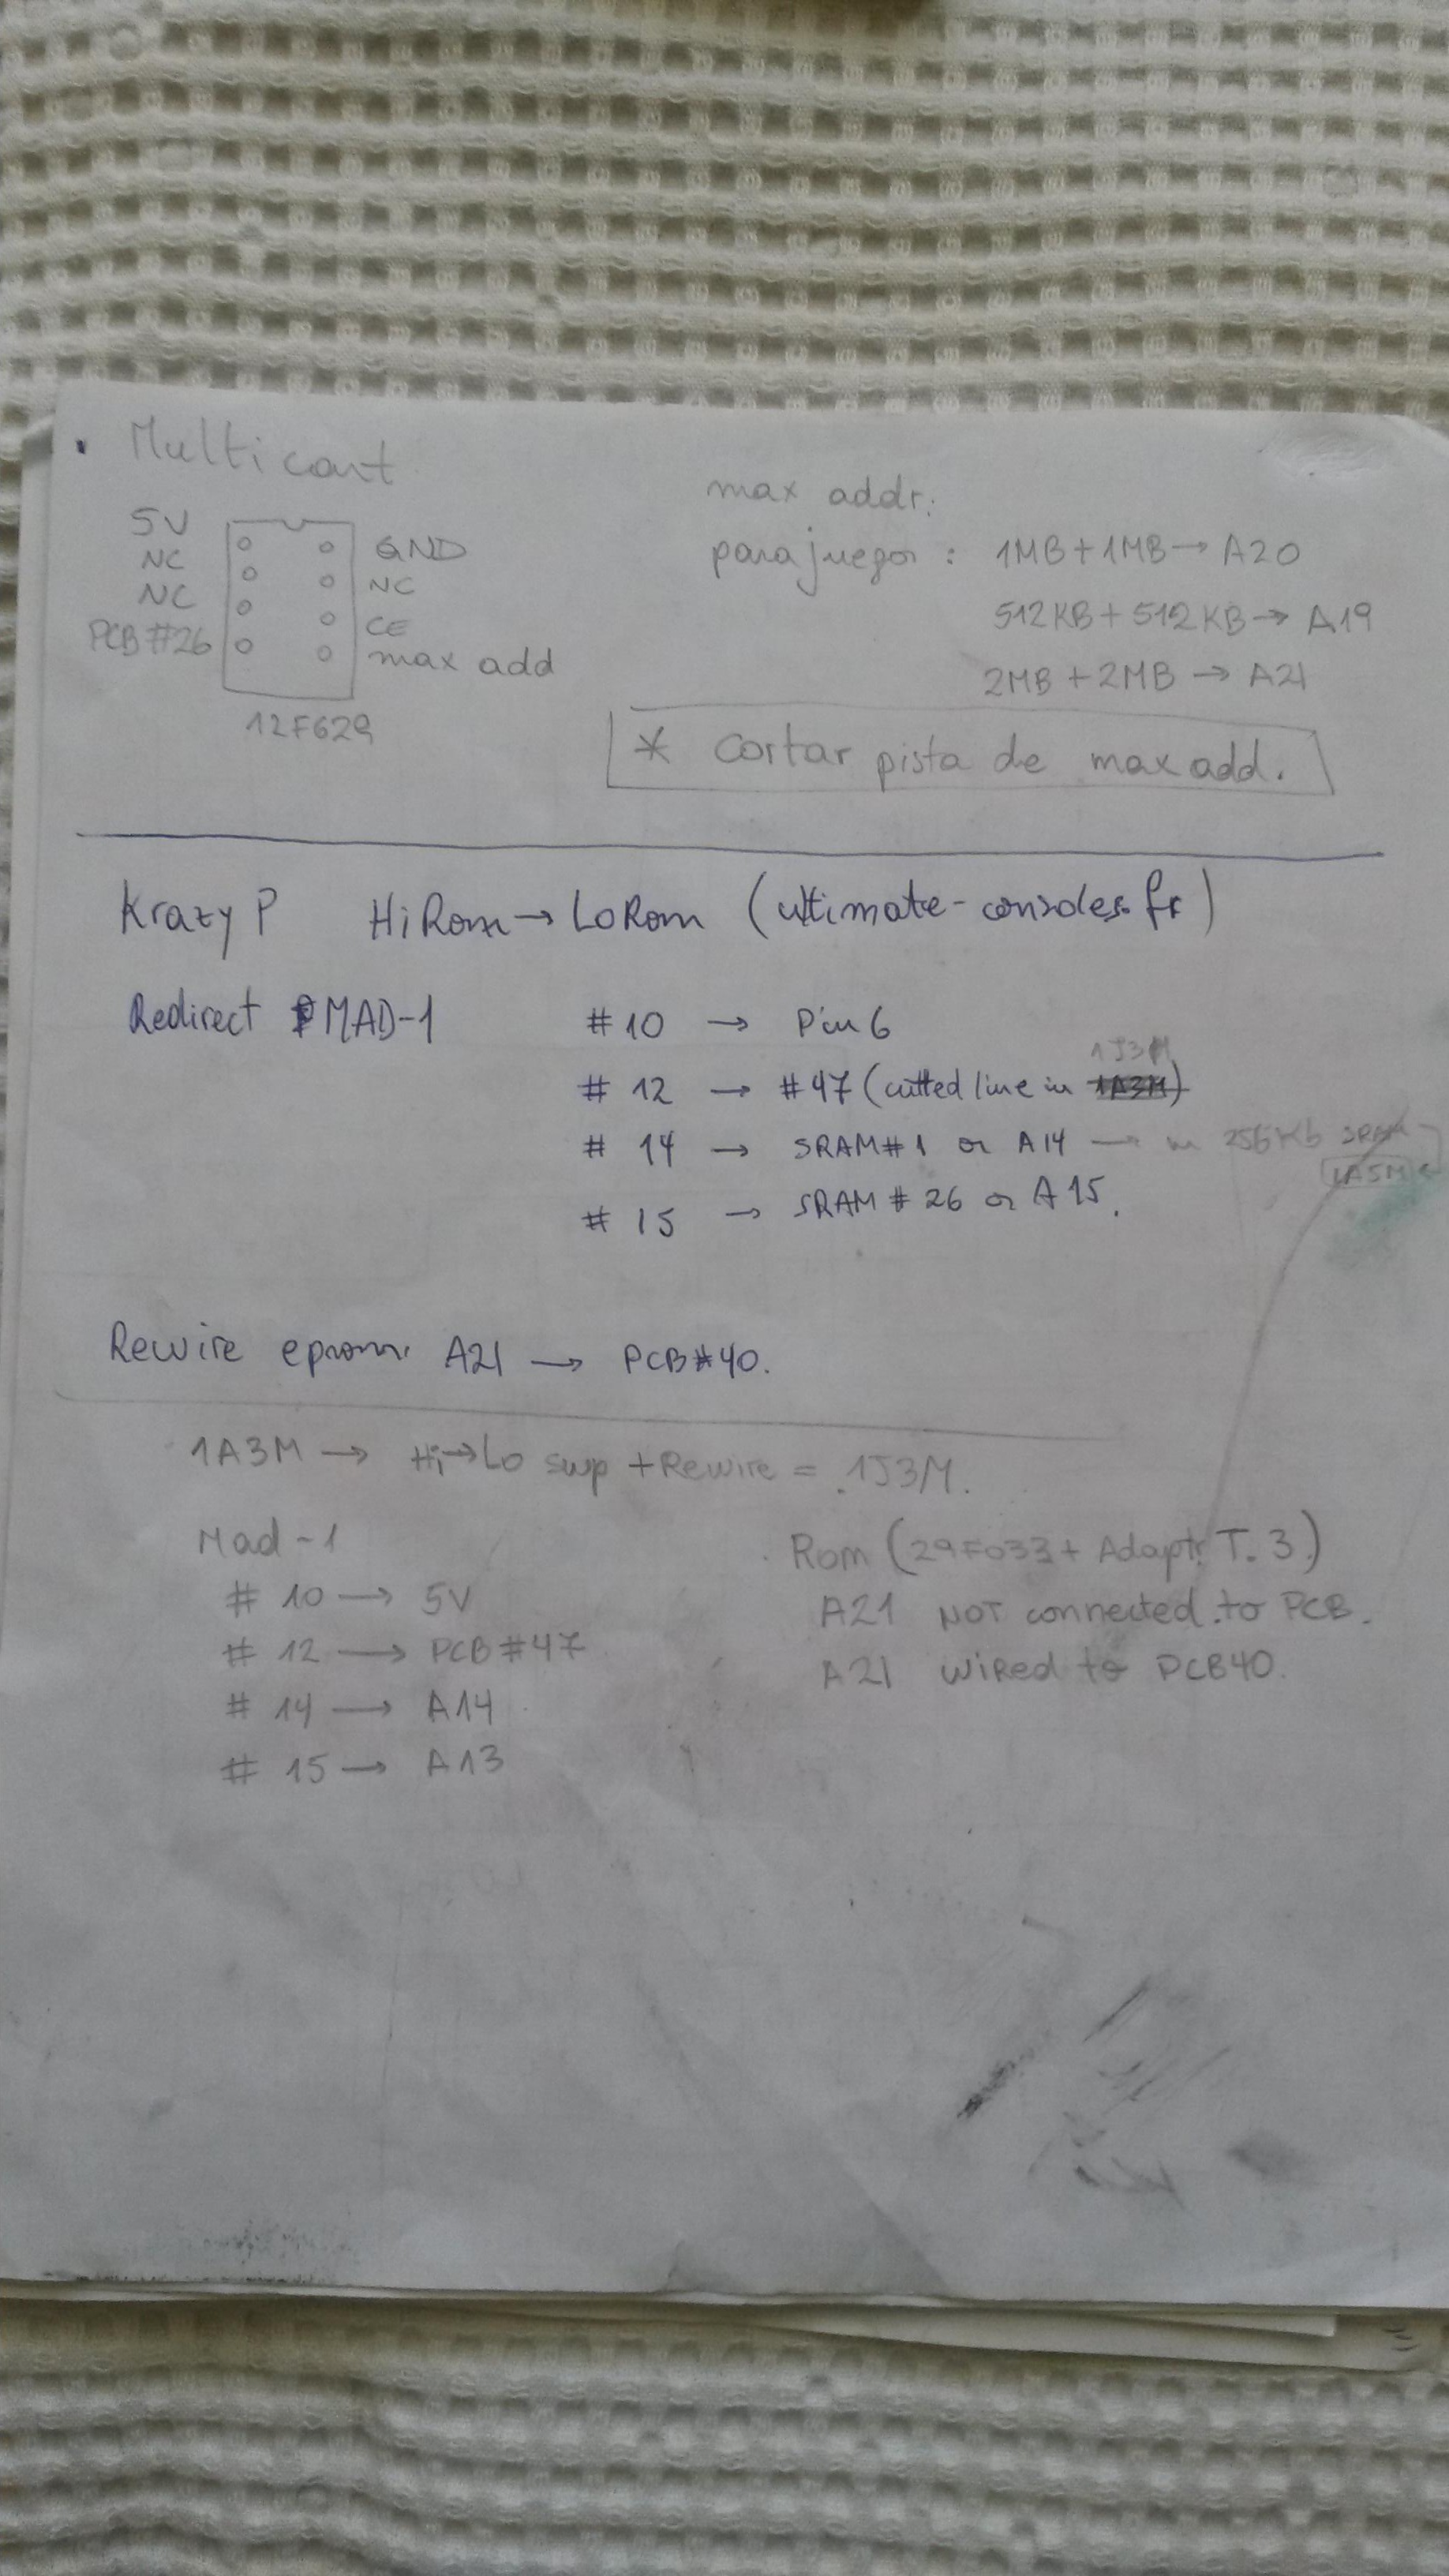 . Multi cart
5V GND
NC NC
NC CE
PCB #26 max add
12F629
max addr:
para juegos : 1MB + 1MB → A20
512KB + 512KB → A19
2MB + 2MB → A21
* Cortar pista de max add.
Krazy P HiRom → LoRom (ultimate-consoles.fr)
Redirect MAD-1 #10 → Pin 6
1J3M
#12 → #47 (cutted line in 1A3M)
#14 → SRAM#1 or A14 → in 256Kb SRAM
1A5M
#15 → SRAM #26 or A15.
Rewire eprom: A21 → PCB#40.
1A3M → Hi→Lo swp + Rewire = 1J3M.
Mad-1
#10 → 5V
#12 → PCB#47
#14 → A14
#15 → A13
Rom (29F033 + Adaptr. T. 3.)
A21 NOT connected to PCB.
A21 wired to PCB40.